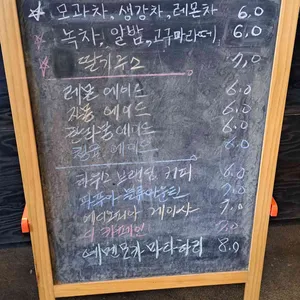 ☆ 모과차, 생강차, 레몬차 6.0
☆ 녹차, 알밤, 고구마라떼 6.0
☆ 딸기주스 7.0
레몬 에이드 6.0
자몽 에이드 6.0
에이드 6.0
에이드 6.0
하우스 브랜딩 커피 6.0
7.0
게이샤 7.0
디카페인 7.0
마타하리 8.0